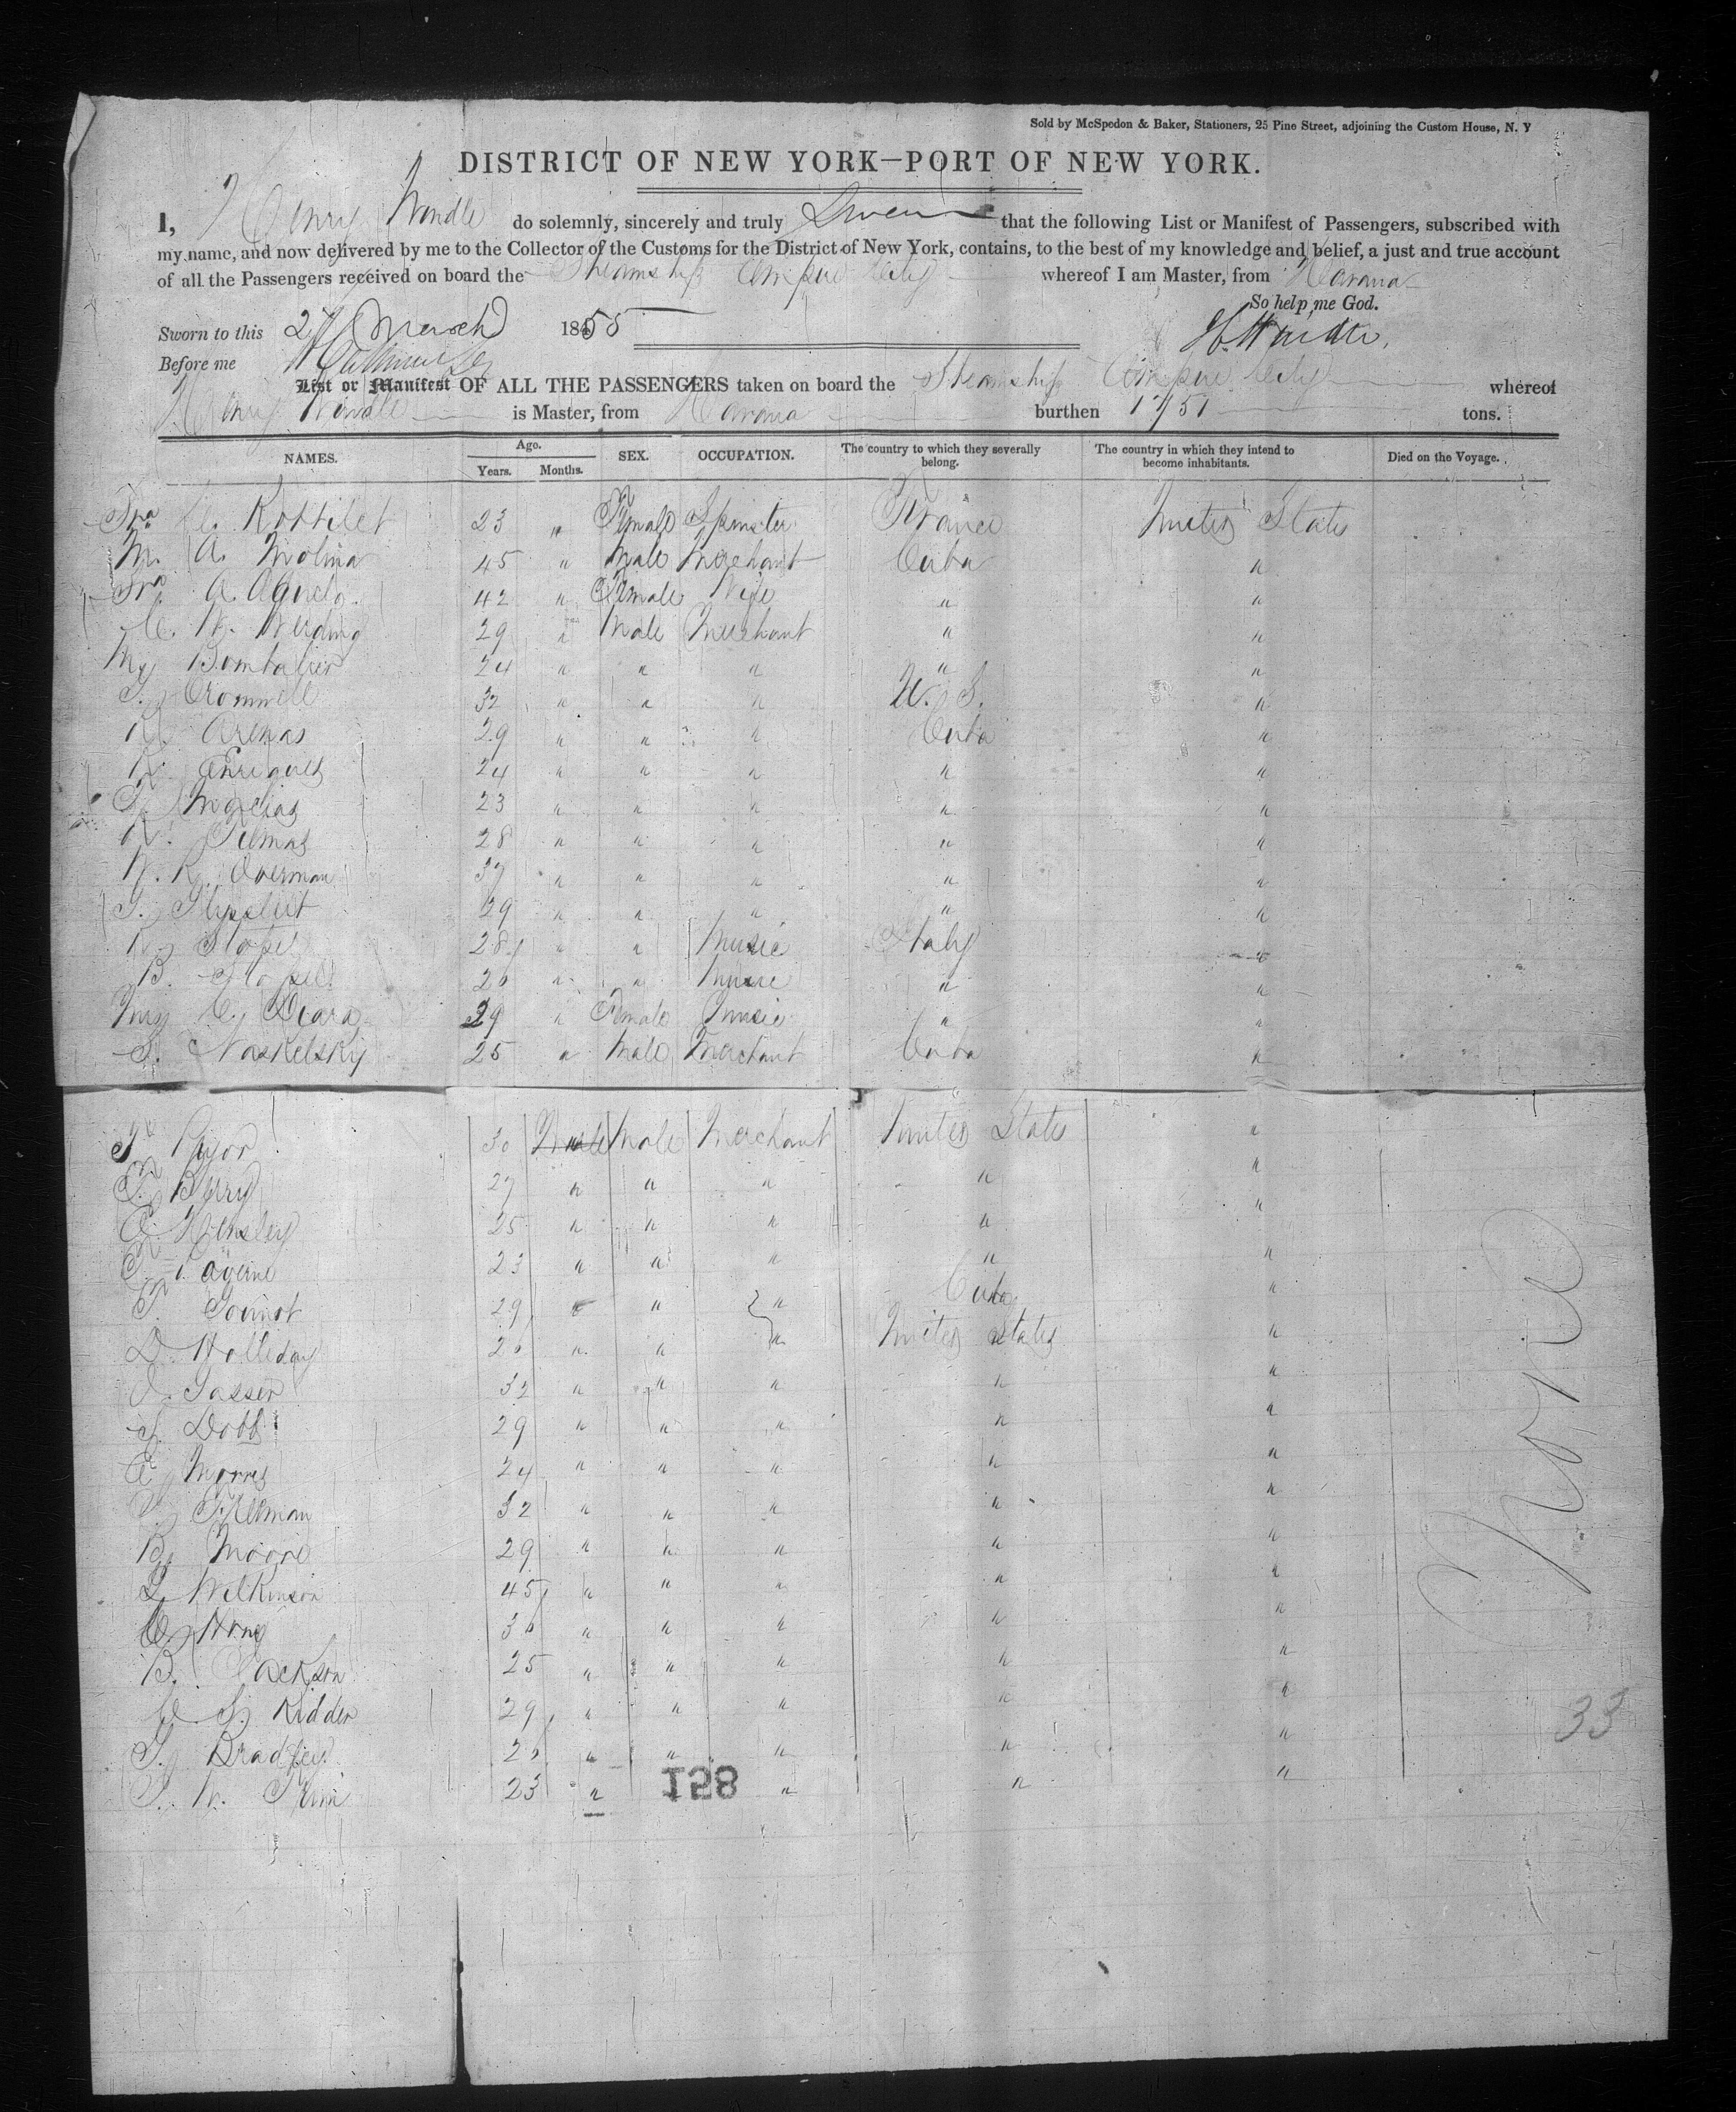 Sold by McSpedon & Baker, Stationers, 25 Pine Street, adjoining the Custom House, N. Y
DISTRICT OF NEW YORK—PORT OF NEW YORK.
I, Henry Windle do solemnly, sincerely and truly Swear that the following List or Manifest of Passengers, subscribed with
my name, and now delivered by me to the Collector of the Customs for the District of New York, contains, to the best of my knowledge and belief, a just and true account
of all the Passengers received on board the Steamship Empire City whereof I am Master, from Havana
So help me God.
Sworn to this 27 March 1855
H. Windle
Before me
List or Manifest OF ALL THE PASSENGERS taken on board the Steamship Empire City whereof
Henry Windle is Master, from Havana burthen 1751 tons.
NAMES. Age. Years. Months. SEX. OCCUPATION. The country to which they severally belong. The country in which they intend to become inhabitants. Died on the Voyage.
Sra 23 " Female Spinster France United States
M. A. Molina 45 " Male Merchant Cuba "
Sra A. Agudo 42 " Female Wife " "
C. W. Werding 29 " Male Merchant " "
My Bombalier 24 " " " " "
S. Cromwell 32 " " " U. S. "
R. Arenas 29 " " " Cuba "
R. Enriques 24 " " " " "
Macias 23 " " " " "
28 " " " " "
W. R. Overman 37 " " " " "
29 " " " " "
28 " " Music Italy "
B. 26 " " Music " "
C. 29 " Female Music " "
S. Naskelsky 25 " Male Merchant Cuba "
Pryor 30 Male Male Merchant United States "
Berry 27 " " " " "
Hensley 25 " " " " "
23 " " " " "
29 " " " Cuba "
D. Holliday 26 " " " United States "
32 " " " " "
S. Dobbs 29 " " " " "
Morris 24 " " " " "
32 " " " " "
B. Moore 29 " " " " "
L. Wilkinson 45 " " " " "
36 " " " " "
B. Jackson 25 " " " " "
S. Kidder 29 " " " " "
Bradley 26 " " " " "
W. 23 " " " " "
None
33
158